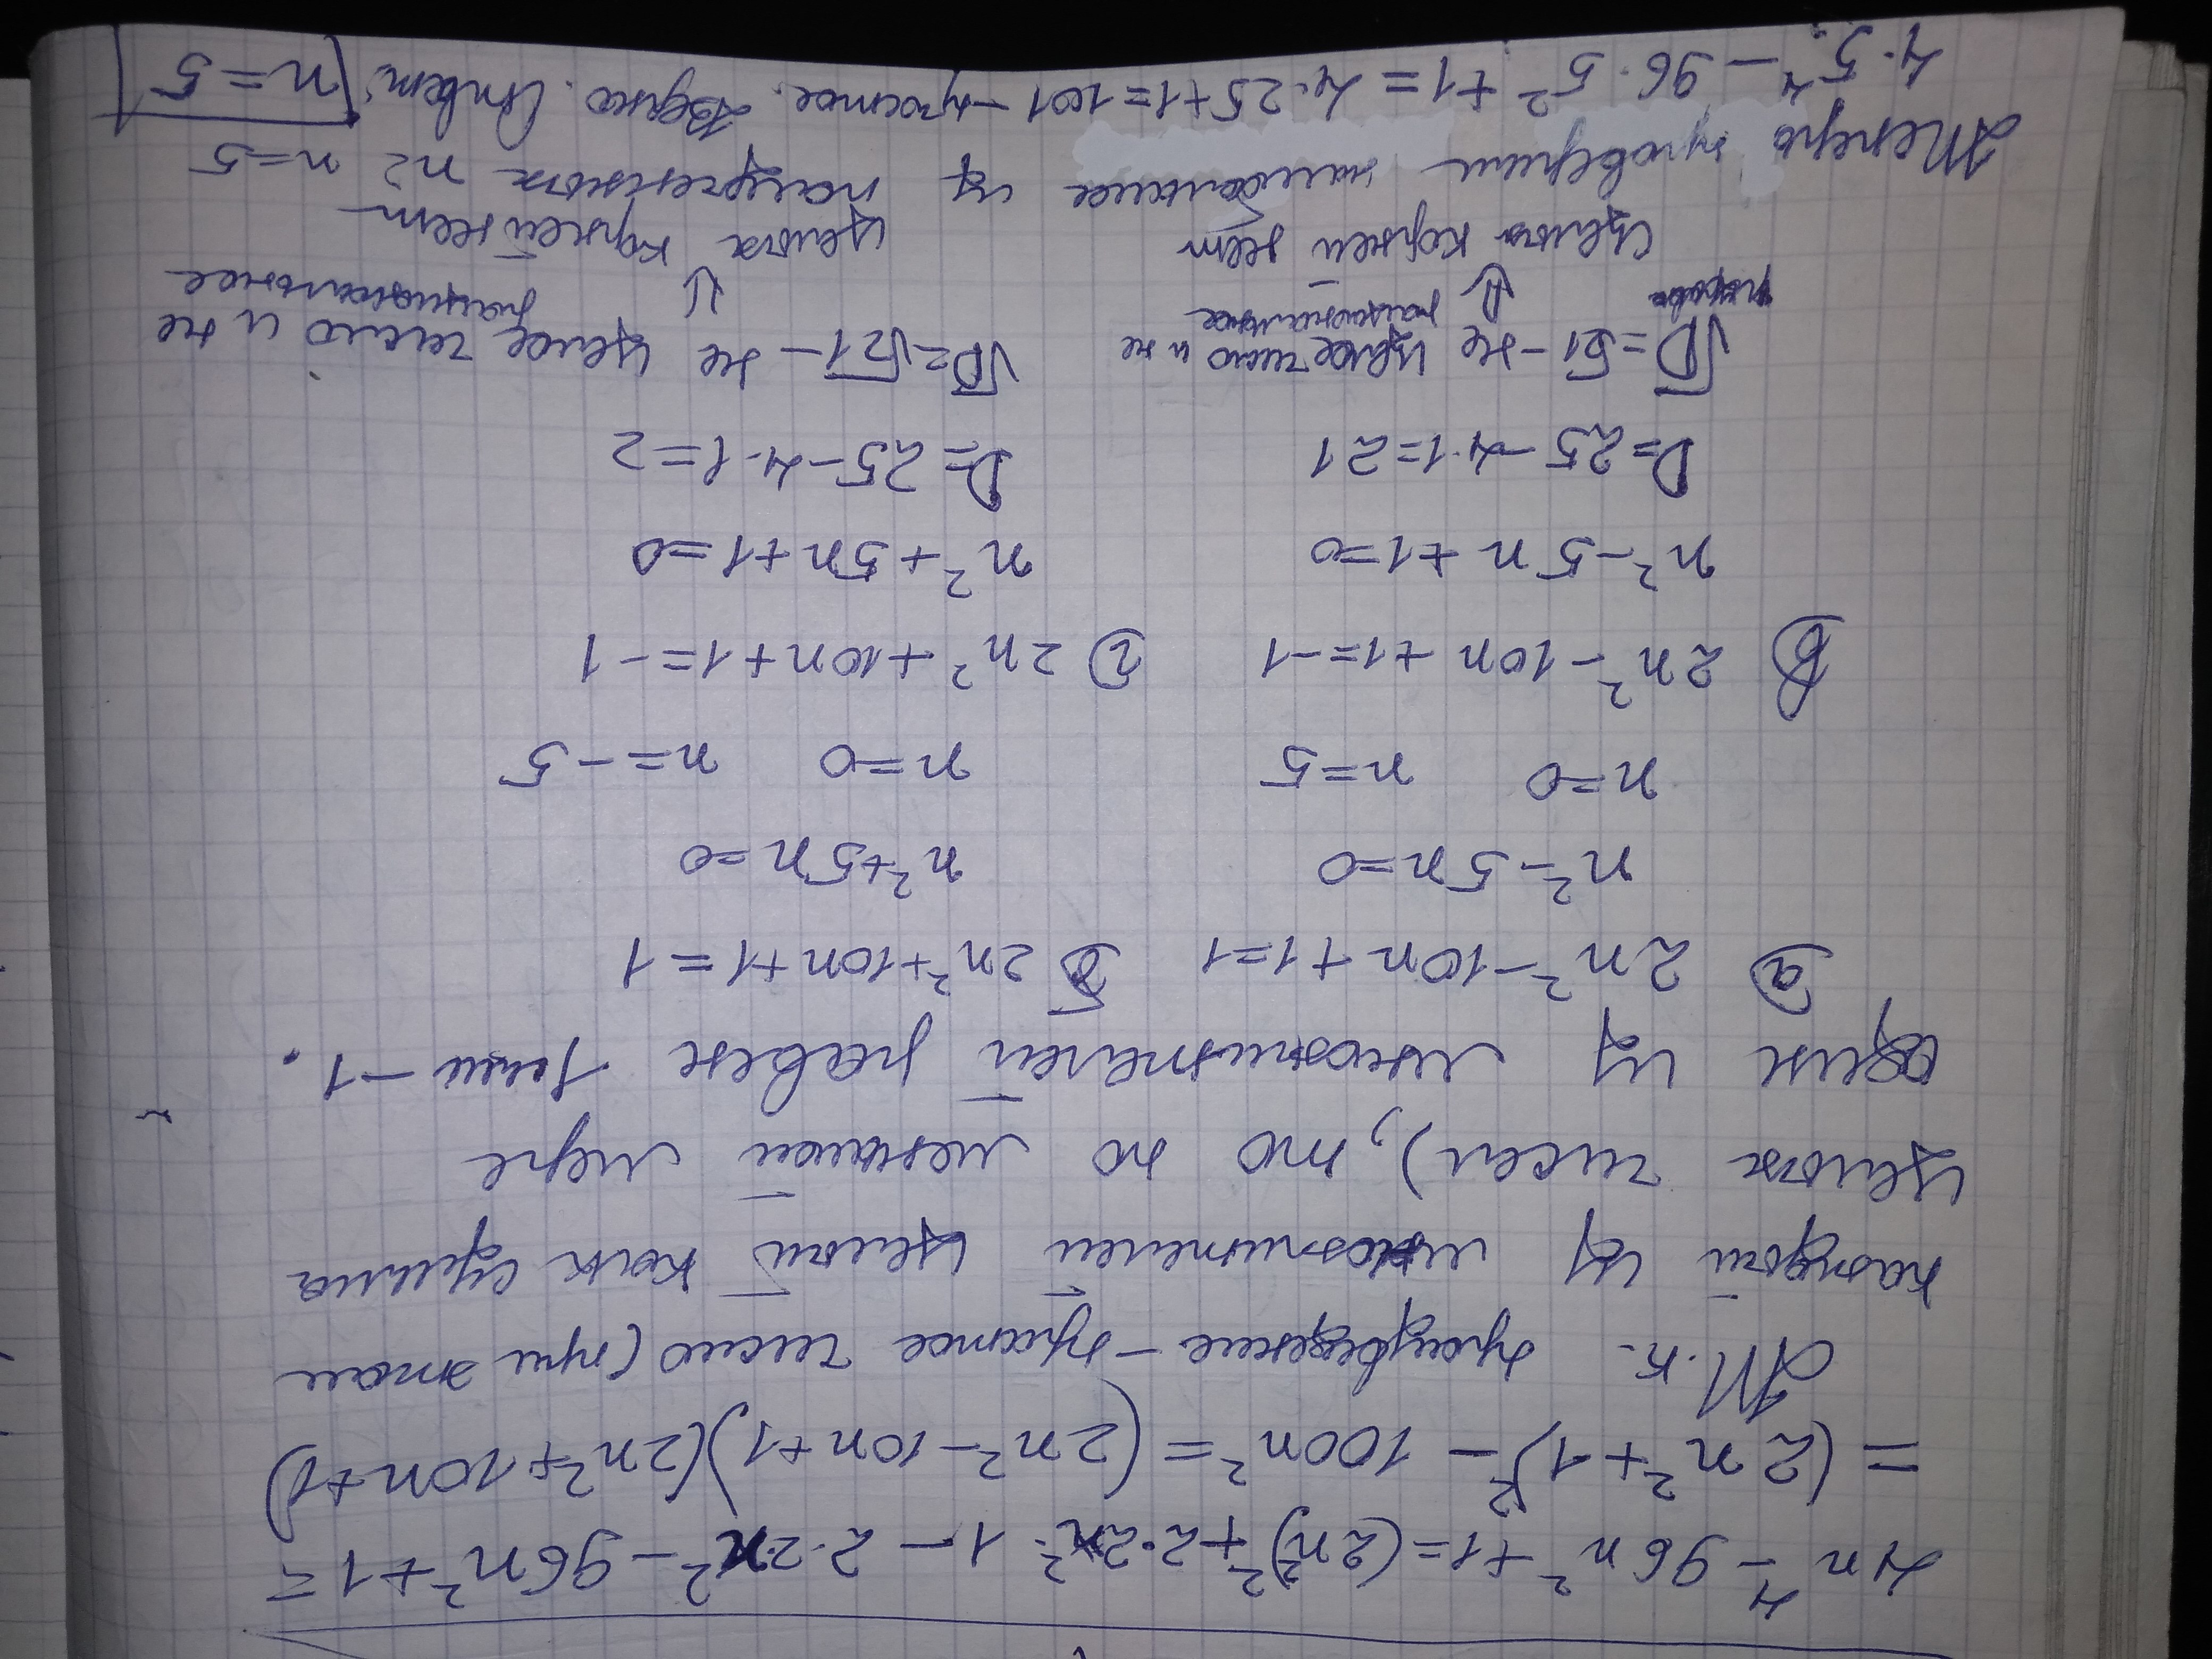 4n⁴ - 96n² + 1 = (2n²)² + 2·2n²·1 - 2·2n² - 96n² + 1 =
= (2n² + 1)² - 100n² = (2n² - 10n + 1)(2n² + 10n + 1)
Т.к. произведение - простое число (при этом
каждый из множителей целый как сумма
целых чисел), то по меньшей мере
один из множителей равен 1 или -1.
а) 2n² - 10n + 1 = 1 б) 2n² + 10n + 1 = 1
n² - 5n = 0 n² + 5n = 0
n = 0 n = 5 n = 0 n = -5
в) 2n² - 10n + 1 = -1 г) 2n² + 10n + 1 = -1
n² - 5n + 1 = 0 n² + 5n + 1 = 0
D = 25 - 4·1 = 21 D = 25 - 4·1 = 2
√D = √21 - не целое число и не рациональное √D = √21 - не целое число и не рациональное
⇓ ⇓
целых корней нет целых корней нет
Теперь проверим наибольшее из натуральных n: n = 5
4·5⁴ - 96·5² + 1 = 4·25 + 1 = 101 - простое. Верно. Ответ: n = 5